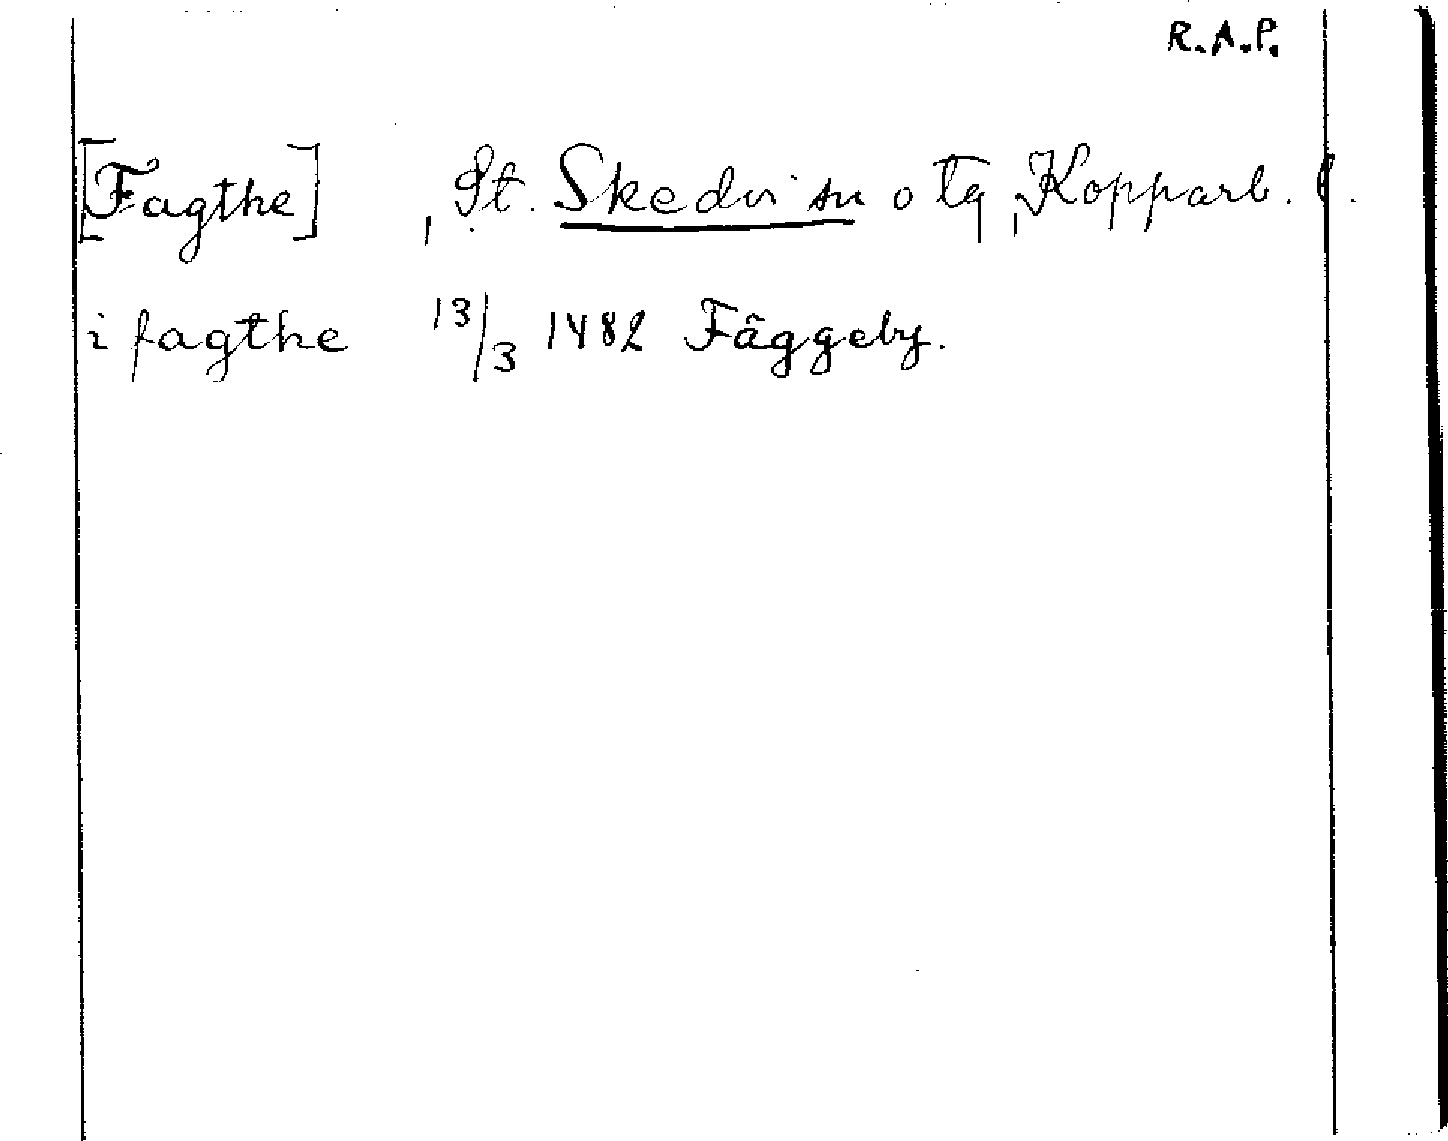 R.A.P.
[Fagthe] , St. Skedvi sn o tg, Kopparb. l.
i fagthe 13/3 1482 Fäggeby.